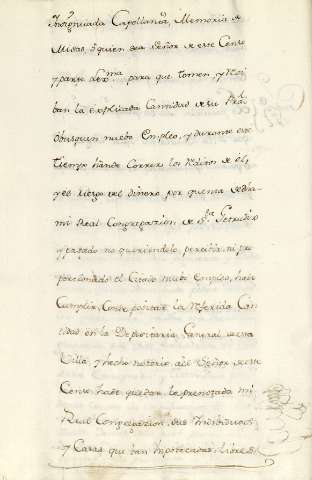 Insignuada Capellania, Memoria de
Misas, o quien sea Señor de este Censo
y parte lexma. para que tomen, y Reci
ban la explicada Cantidad de su Prâl
Obsequen nuebo Empleo, y durante este
tiempo hande Correr los Reditos de el,
y el riezgo del dinero por quenta de dha
mi Real Congregazion de Sta. Getrudis
y pasado no queriendolo percibir, ni pro
porcionado el Citado nuebo Empleo, hade
Cumplir, Conse positar la Referida Can
tidad en la Depositaria General de esta
Villa, y hecho notorio al Señor de este
Censo hade quedar la prenotada mi
Real Congregazion, sus Individuos,
y Casas que ban Hipotecadas, libres